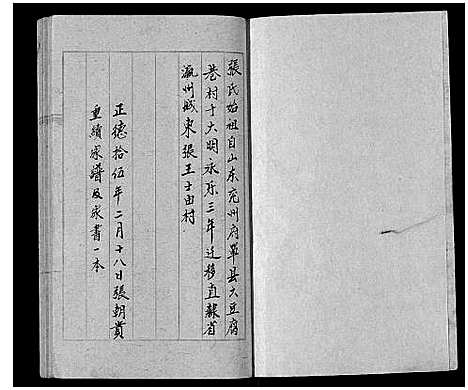 張氏始祖自山东兖州府單县大豆腐
巷村于大明永乐三年迁移直隸省
瀛州城東張王士由村
正德拾伍年二月十八日張朝貢
重續家譜及家書一本